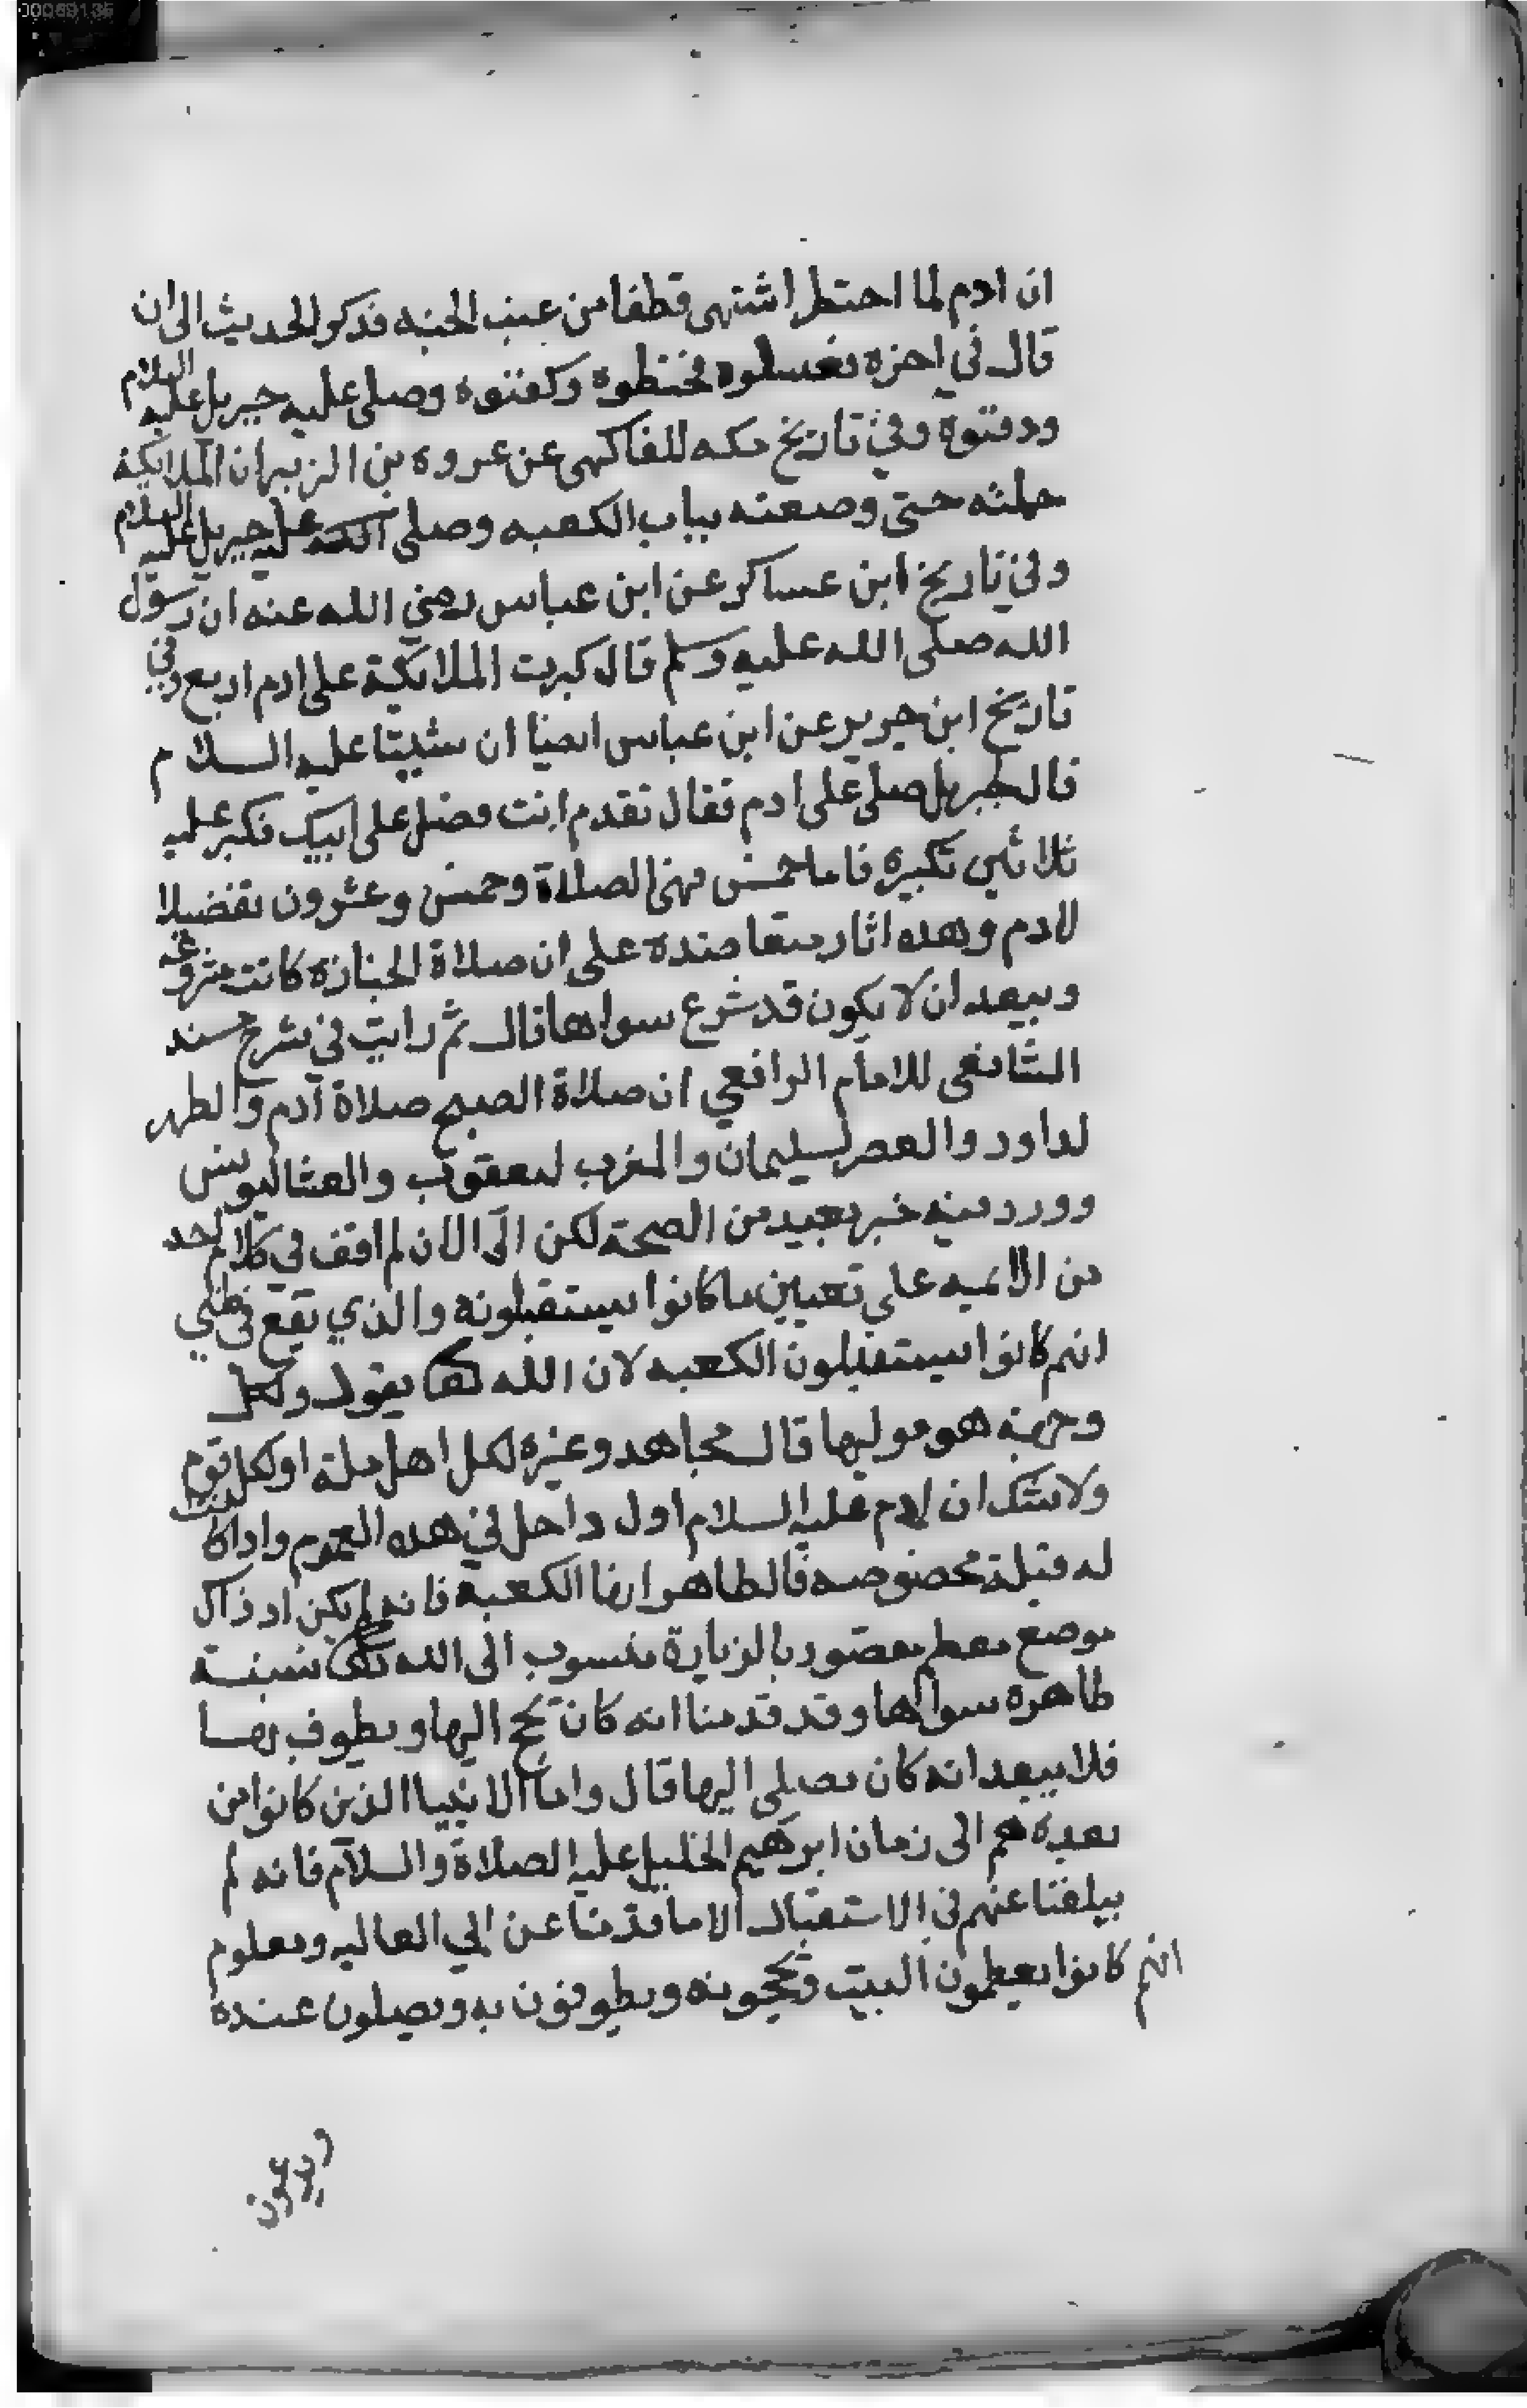 00069135
ان ادم لما احتضر اشتهى قطفا من عنب الجنه فذكر الحديث الى ان
قال في اخره فغسلوه فحنطوه وكفنوه وصلى عليه جبريل عليه السلام
ودفنوه وفي تاريخ مكه للفاكهى عن عروه بن الزبير ان الملايكة
حملته حتى وضعته بباب الكعبه وصلى عليه جبريل عليه السلام
وفي تاريخ ابن عساكر عن ابن عباس رضي الله عنه ان رسول
الله صلى الله عليه وسلم قال كبرت الملايكة على ادم اربع وفي
تاريخ ابن جرير عن ابن عباس ايضا ان شيثا عليه السلام
قال لجبريل صلى على ادم فقال تقدم انت فصل على ابيك فكبر عليه
ثلاثين تكبيره فاما خمس فهى الصلاة وخمس وعشرون تفضيلا
لادم وهذه اثار متعاضدة على ان صلاة الجنازة كانت مشروعه
ويبعد ان لا يكون قد شرع سواها قال ثم رايت في شرح مسند
الشافعى للامام الرافعي ان صلاة الصبح صلاة آدم والظهر
لداود والعصر لسليمان والمغرب ليعقوب والعشا ليونس
وورد فيه خبر بعيد من الصحة لكن الى الان لم اقف في كلام احد
من الائمه على تعيين ما كانوا يستقبلونه والذي يقع في ظني
انهم كانوا يستقبلون الكعبه لان الله تعالى يقول ولكل
وجهة هو موليها قال مجاهد وغيره لكل اهل ملة او لكل قوم
ولا شك ان ادم عليه السلام اول داخل في هذه العموم واذا كانت
له قبلة مخصوصه فالظاهر انها الكعبة فانه لم يكن اذ ذاك
موضع معظم مقصود بالزيارة منسوب الى الله تعالى نسبة
ظاهرة سواها وقد قدمنا انه كان يحج اليها ويطوف بها
فلا يبعد انه كان يصلي اليها قال واما الانبيا الذين كانوا من
بعده هم الى زمان ابرهيم الخليل عليه الصلاة والسلام فانه لم
يبلغنا عنهم في الاستقبال الا ما قدمنا عن ابي العاليه ومعلوم
انهم كانوا يعظمون البيت ويحجونه ويطوفون به ويصلون عنده
ويدعون